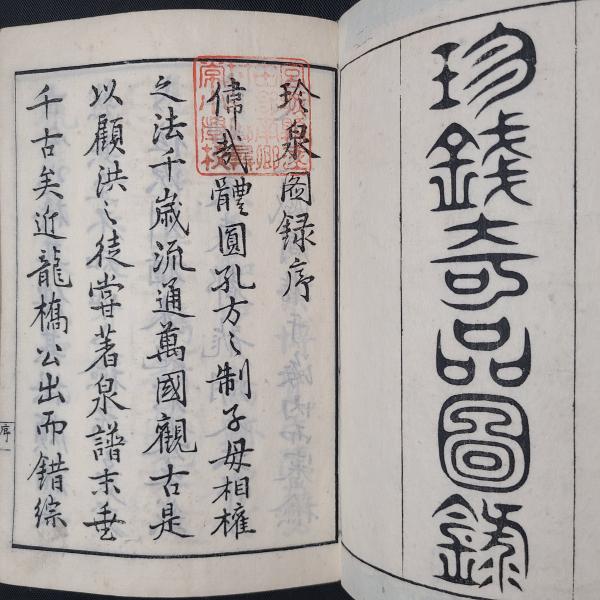 珍錢奇品圖錄
珍泉圖録序
偉哉體圓孔方〻制子母相權
之法千歳流通萬國觀古是
以顧洪〻徒嘗著泉譜末垂
千古矣近龍橋公出而錯綜
序